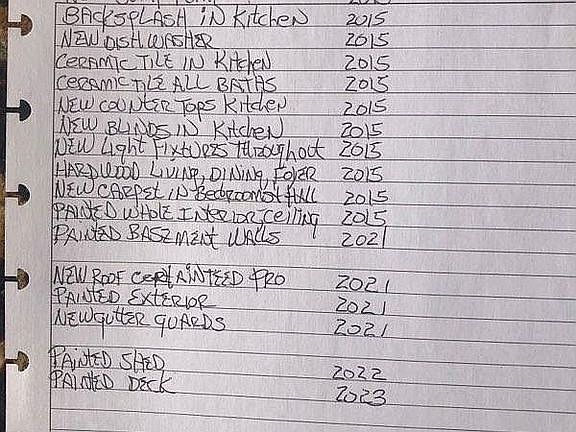 BACKSPLASH IN KITCHEN 2015
NEW DISH WASHER 2015
CERAMIC TILE IN KITCHEN 2015
CERAMIC TILE ALL BATHS 2015
NEW COUNTER TOPS KITCHEN 2015
NEW BLINDS IN KITCHEN 2015
NEW LIGHT FIXTURES THROUGHOUT 2015
HARDWOOD LIVING, DINING, FOYER 2015
NEW CARPET IN BEDROOMS HALL 2015
PAINTED WHOLE INTERIOR CEILING 2015
PAINTED BASEMENT WALLS 2021
NEW ROOF CERTAINTEED PRO 2021
PAINTED EXTERIOR 2021
NEW GUTTER GUARDS 2021
PAINTED SHED 2022
PAINTED DECK 2023